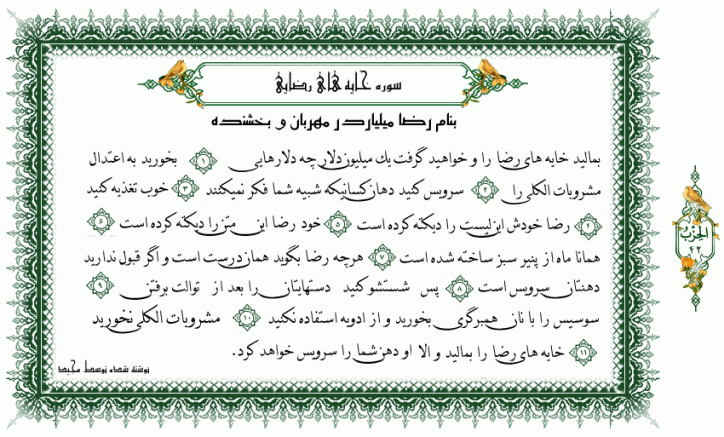 سوره خایه های رضایی
بنام رضا میلیاردر مهربان و بخشنده
بمالید خایه های رضا را و خواهید گرفت یك میلیون دلار چه دلارهایی ۱ بخورید به اعتدال
مشروبات الکلی را ۲ سرویس کنید دهان کسانیکه شبیه شما فکر نمیکنند ۳ خوب تغذیه کنید
۴ رضا خودش این لیست را دیکته کرده است ۵ خود رضا این متن را دیکته کرده است ۶
همانا ماه از پنیر سبز ساخته شده است ۷ هرچه رضا بگوید همان درست است و اگر قبول ندارید
دهنتان سرویس است ۸ پس شستشو کنید دستهایتان را بعد از توالت برفتن ۹
سوسیس را با نان همبرگری بخورید و از ادویه استفاده نکنید ۱۰ مشروبات الکلی نخورید
۱۱ خایه های رضا را بمالید و الا او دهن شما را سرویس خواهد کرد.
نوشته شده توسط مجید
الحزب
۴۲